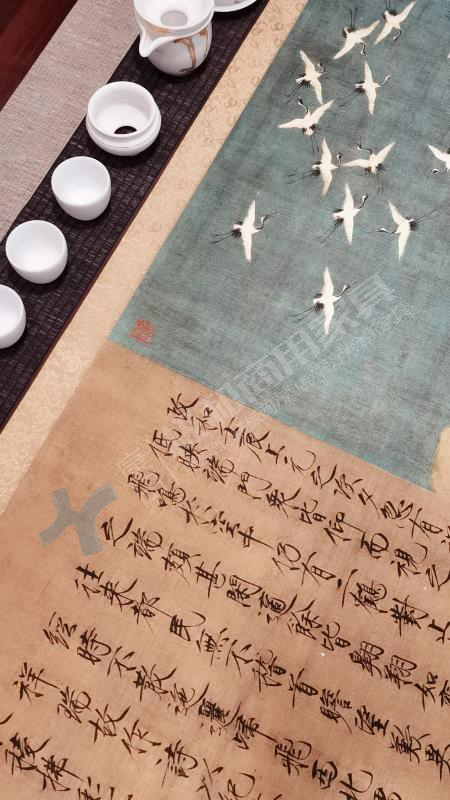 政和壬辰上元之次夕忽有
低映端門衆皆仰而視之
飛鳴於空中仍有二鶴對止
之端頗甚閑適餘皆翱翔如
往來都民無不稽首瞻望歎異
經時不散迤邐歸飛西北
祥瑞故作詩以紀
商用家具